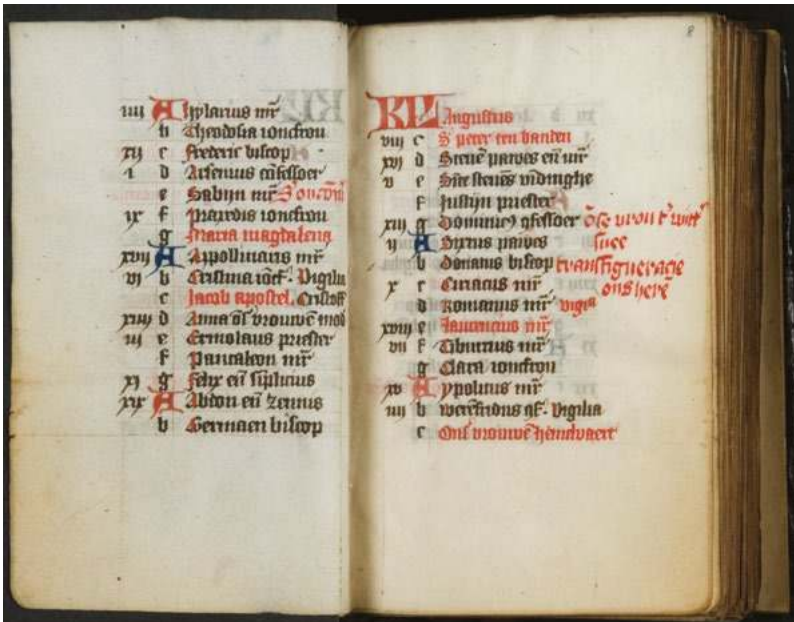 iiii A ylarius mr̄
b Theodosia ioncfrou
xii c Frederic biscop
i d Arsenius cōfessoer
e Sabijn mr̄
ix f Praxedis ioncfrou
g Maria magdalena
xvii A Appollinaris mr̄
vi b Cristina iōcf. Vigilia
c Jacob apostel. Cristoff
xiiii d Anna ōs vrouwē mod
iii e Ermolaus priester
f Pantaleon mr̄
xi g Felix eñ siplicius
xix A Abdon eñ zennis
b Germaen biscop
8
KL Augustus
viii c S peter ten banden
xvi d Steuē pawes eñ mr̄
v e Sīte steuēs vīdinghe
f Justijn priester
xiii g Dominic9 cōfessoer ōse vrou t' wit
ii A Sixtus pawes snee
b Donatus biscop transfigueracie
x c Ciriacus mr̄ ons herē
d Romanus mr̄ vigiā
xviii e Laurencius mr̄
vii f Tiburtius mr̄
g Clara ioncfrou
xv A ypolitus mr̄
iiii b werēfridus cōf. Vigilia
c Ons vrouwē hemelvaert